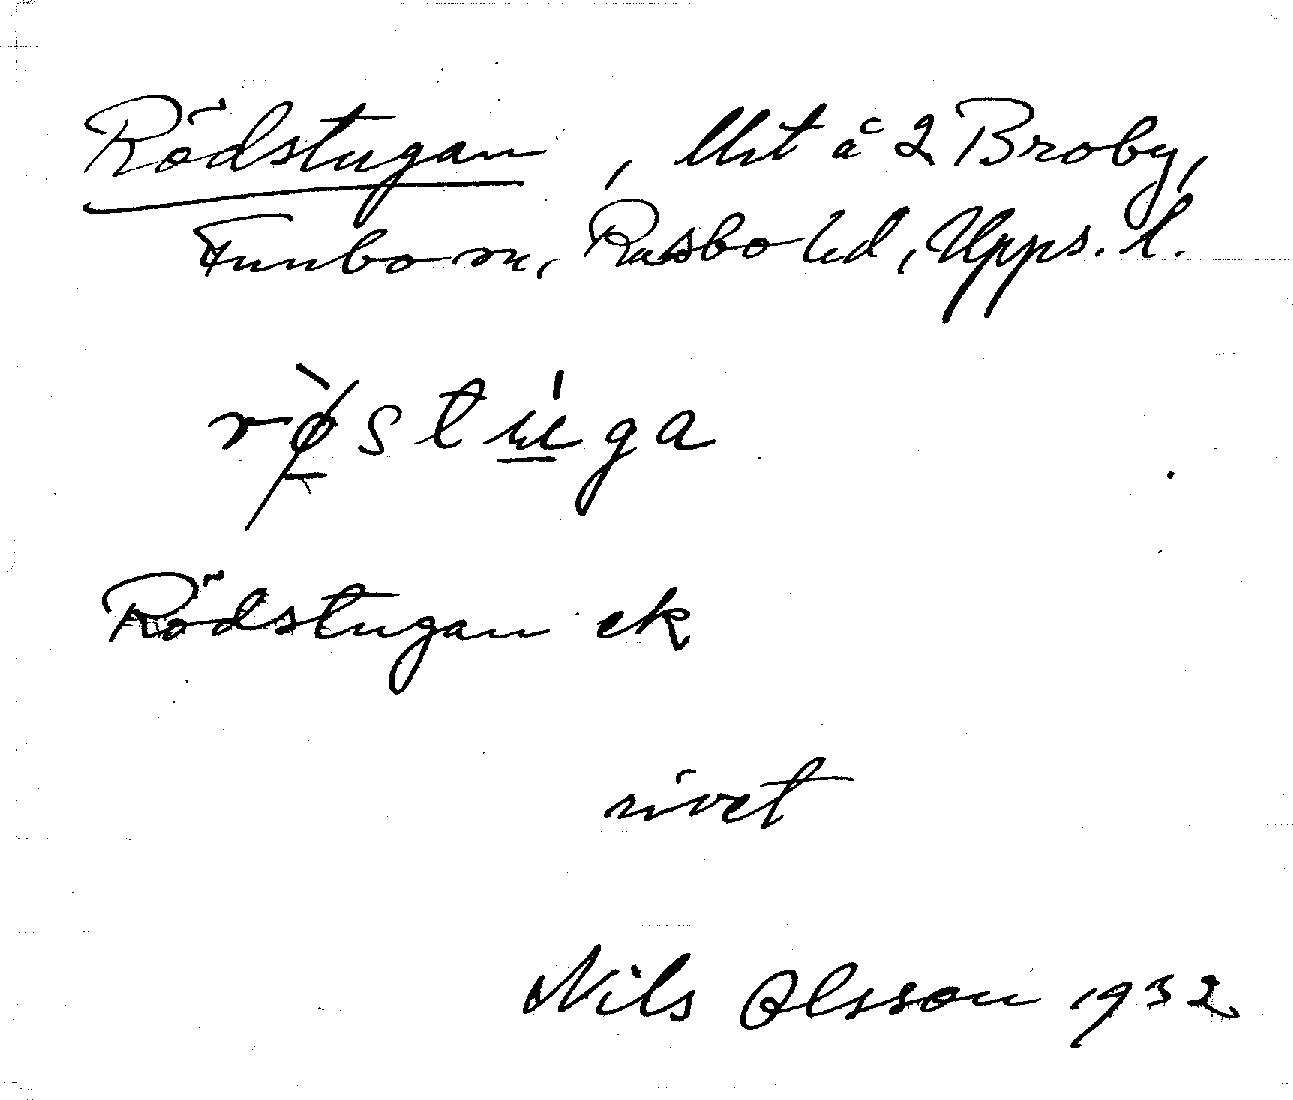 Rödstugan, Utit å 2 Broby,
Funbo sn, Rasbo hd, Upps. l.
rø̀stu̍ga
Rödstugan ek
rivet
Nils Olsson 1932